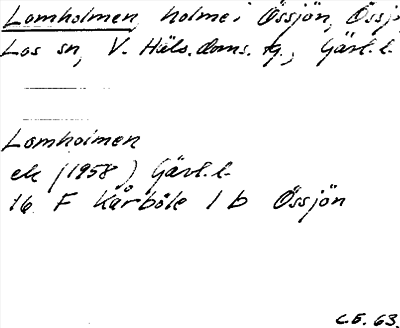 Lomholmen, holme i Össjön, Össj
Los sn, V. Häls. doms. tg., Gävl. l.
Lomholmen
ek (1958) Gävl. l.
16 F Kårböle 1 b Össjön
C.E. 63.